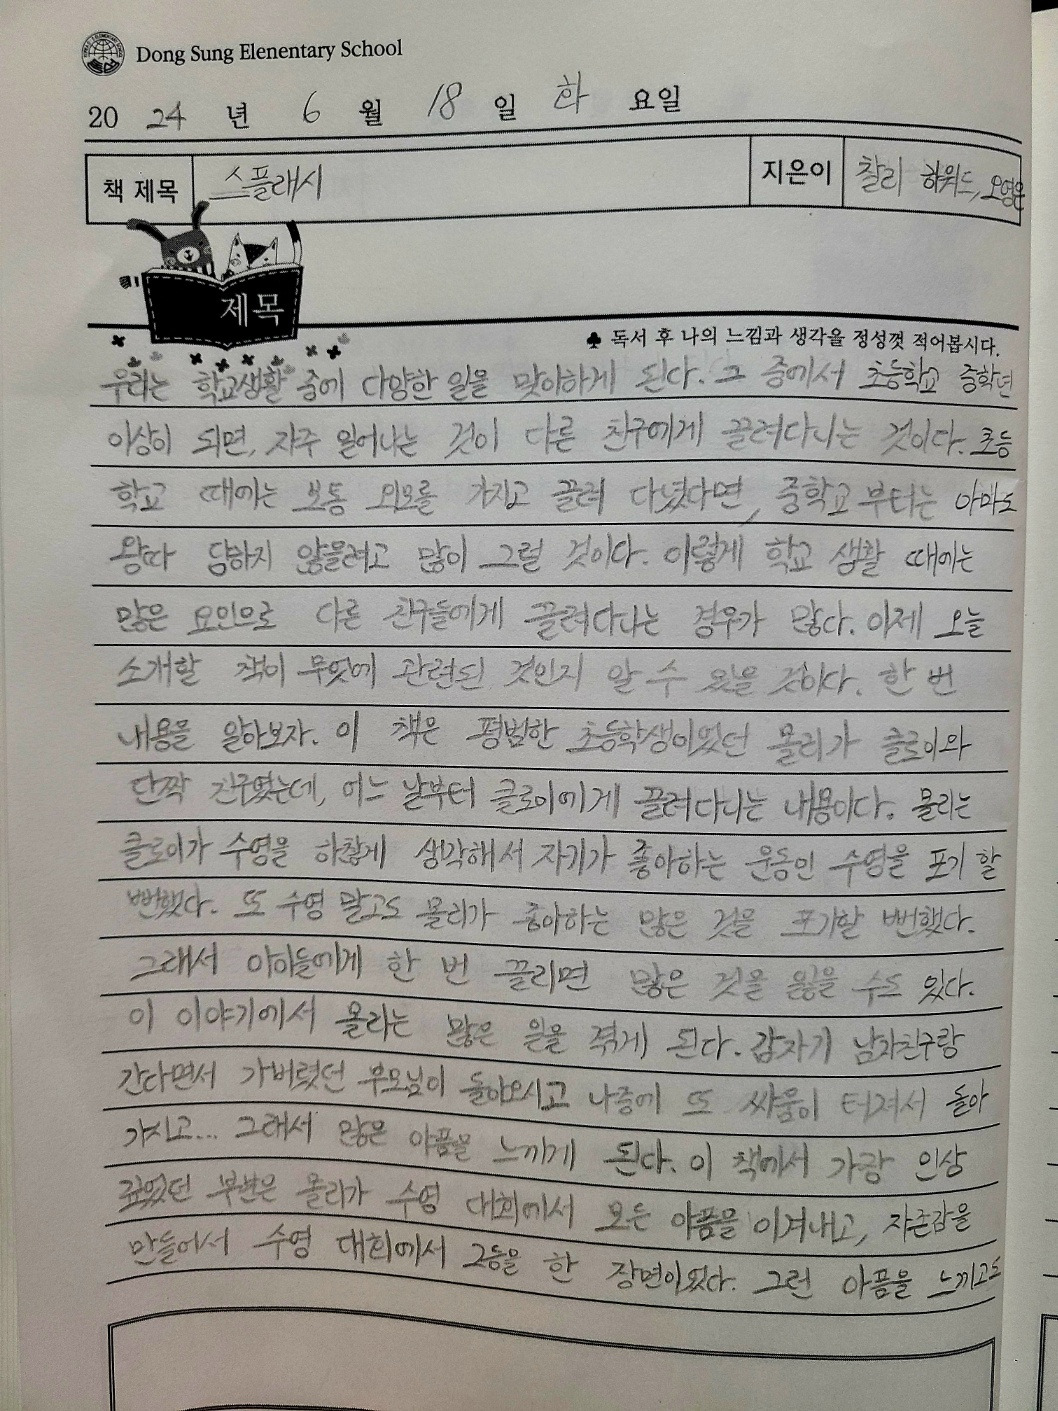 Dong Sung Elenentary School
20 24 년 6 월 18 일 화 요일
책 제목 스플래시 지은이 찰리 하워드, 오영은
제목
♣ 독서 후 나의 느낌과 생각을 정성껏 적어봅시다.
우리는 학교생활 중에 다양한 일을 맞아하게 된다. 그 중에서 초등학교 중학년
이상이 되면, 자주 일어나는 것이 다른 친구에게 끌려다니는 것이다. 초등
학교 때에는 보통 외모를 가지고 끌려 다녔다면, 중학교부터는 아마도
왕따 담하지 않을려고 많이 그럴 것이다. 이렇게 학교 생활 때에는
많은 요인으로 다른 친구들에게 끌려다니는 경우가 많다. 이제 오늘
소개할 책이 무엇에 관련된 것인지 알 수 있을 것이다. 한 번
내용을 알아보자. 이 책은 평범한 초등학생이었던 몰리가 클로이와
단짝 친구였는데, 어느 날부터 클로이에게 끌려다니는 내용이다. 몰리는
클로이가 수영을 하찮게 생각해서 자기가 좋아하는 운동인 수영을 포기 할
뻔했다. 또 수영 말고도 몰리가 좋아하는 많은 것을 포기할 뻔했다.
그래서 아이들에게 한 번 끌리면 많은 것을 잃을 수도 있다.
이 이야기에서 몰리는 많은 일을 겪게 된다. 갑자기 남자친구랑
간다면서 가버렸던 부모님이 돌아오시고 나중에 또 싸움이 터져서 돌아
가시고... 그래서 많은 아픔을 느끼게 된다. 이 책에서 가장 인상
깊었던 부분은 몰리가 수영 대회에서 모든 아픔을 이겨내고, 자존감을
만들어서 수영 대회에서 2등을 한 장면이었다. 그런 아픔을 느끼고도